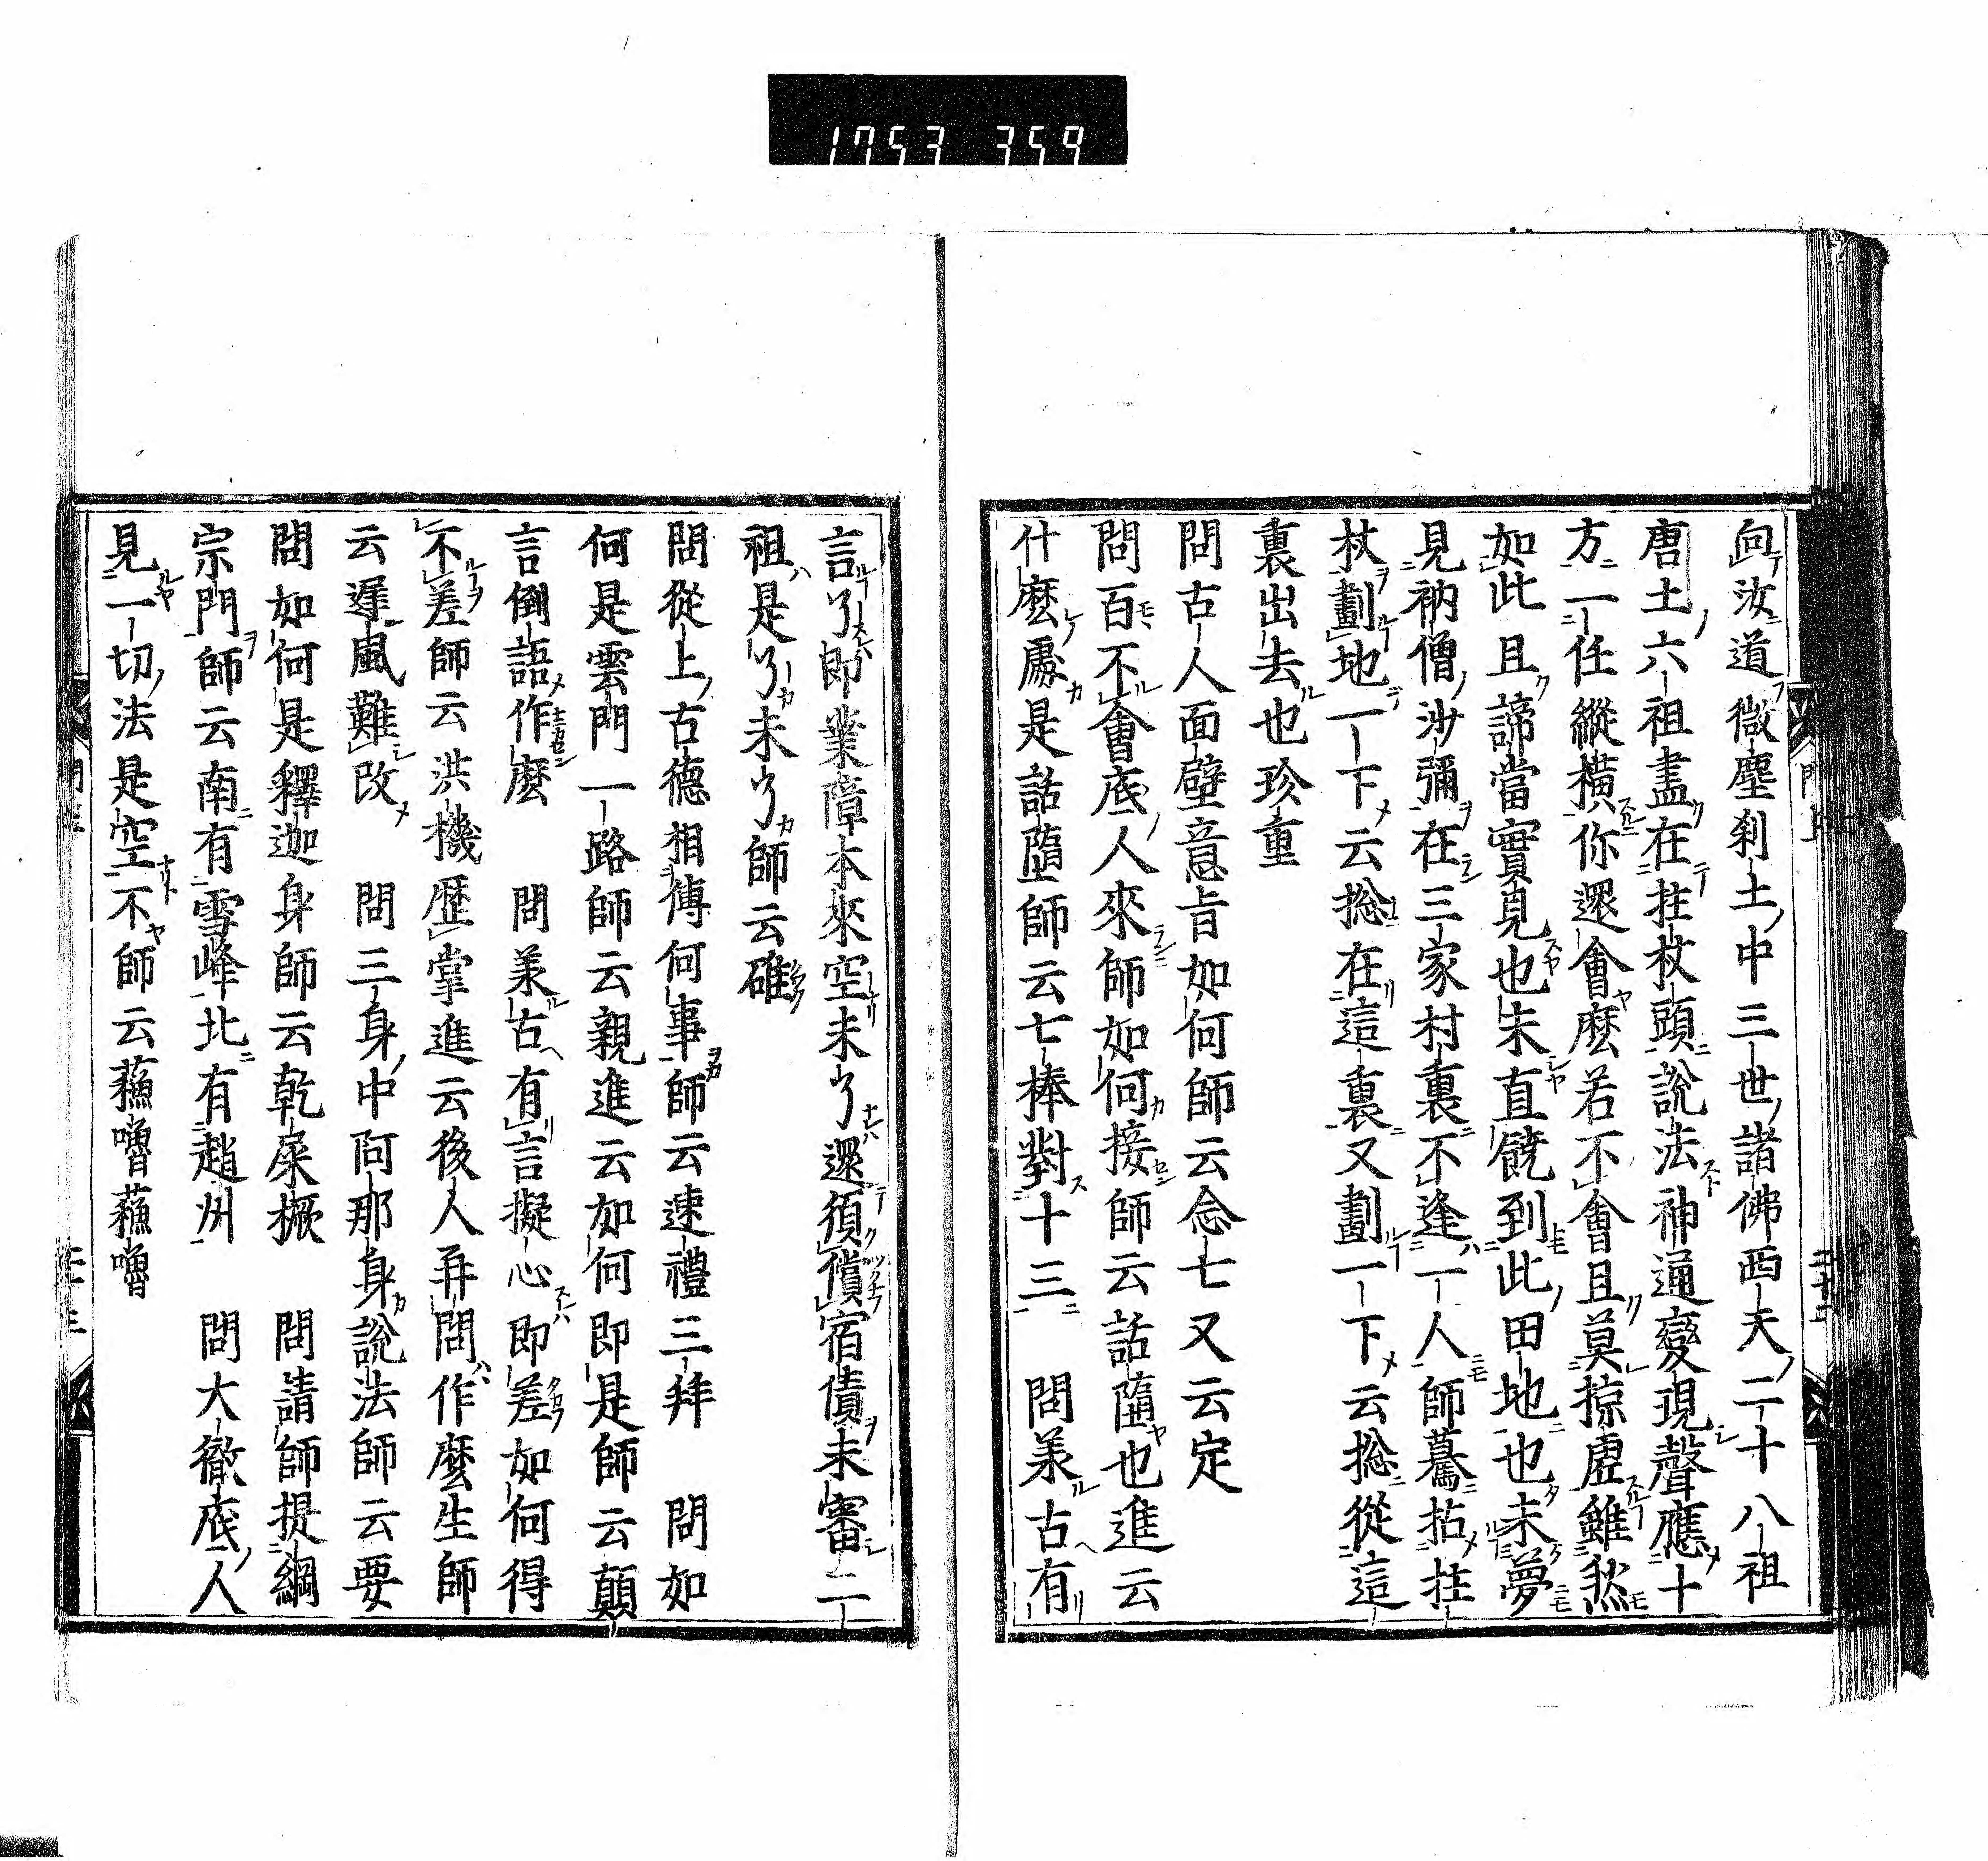 1753 359
向汝道微塵刹土中三世諸佛西天二十八祖
唐土六祖盡在拄杖頭說法神通變現聲應十
方一任縱橫你還會麼若不會且莫掠虛雖然
如此且諦當實見也未直饒到此田地也未夢
見衲僧沙彌在三家村裏不逢一人師驀拈拄
杖劃地一下云捴在這裏又劃一下云捴從這
裏出去也珍重
問古人面壁意旨如何師云念七又云定
問百不會底人來師如何接師云話墮也進云
什麼處是話墮師云七棒對十三　問美古有
言了即業障本來空未了還須償宿債未審二
祖是了未了師云確
問從上古德相傳何事師云速禮三拜　問如
何是雲門一路師云親進云如何即是師云顛
言倒語作麼　問美古有言擬心即差如何得
不差師云洪機歷掌進云後人再問作麼生師
云遲風難改　問三身中阿那身說法師云要
問如何是釋迦身師云乾屎橛　問請師提綱
宗門師云南有雪峰北有趙州　問大徹底人
見一切法是空不師云蘓嚕蘓嚕